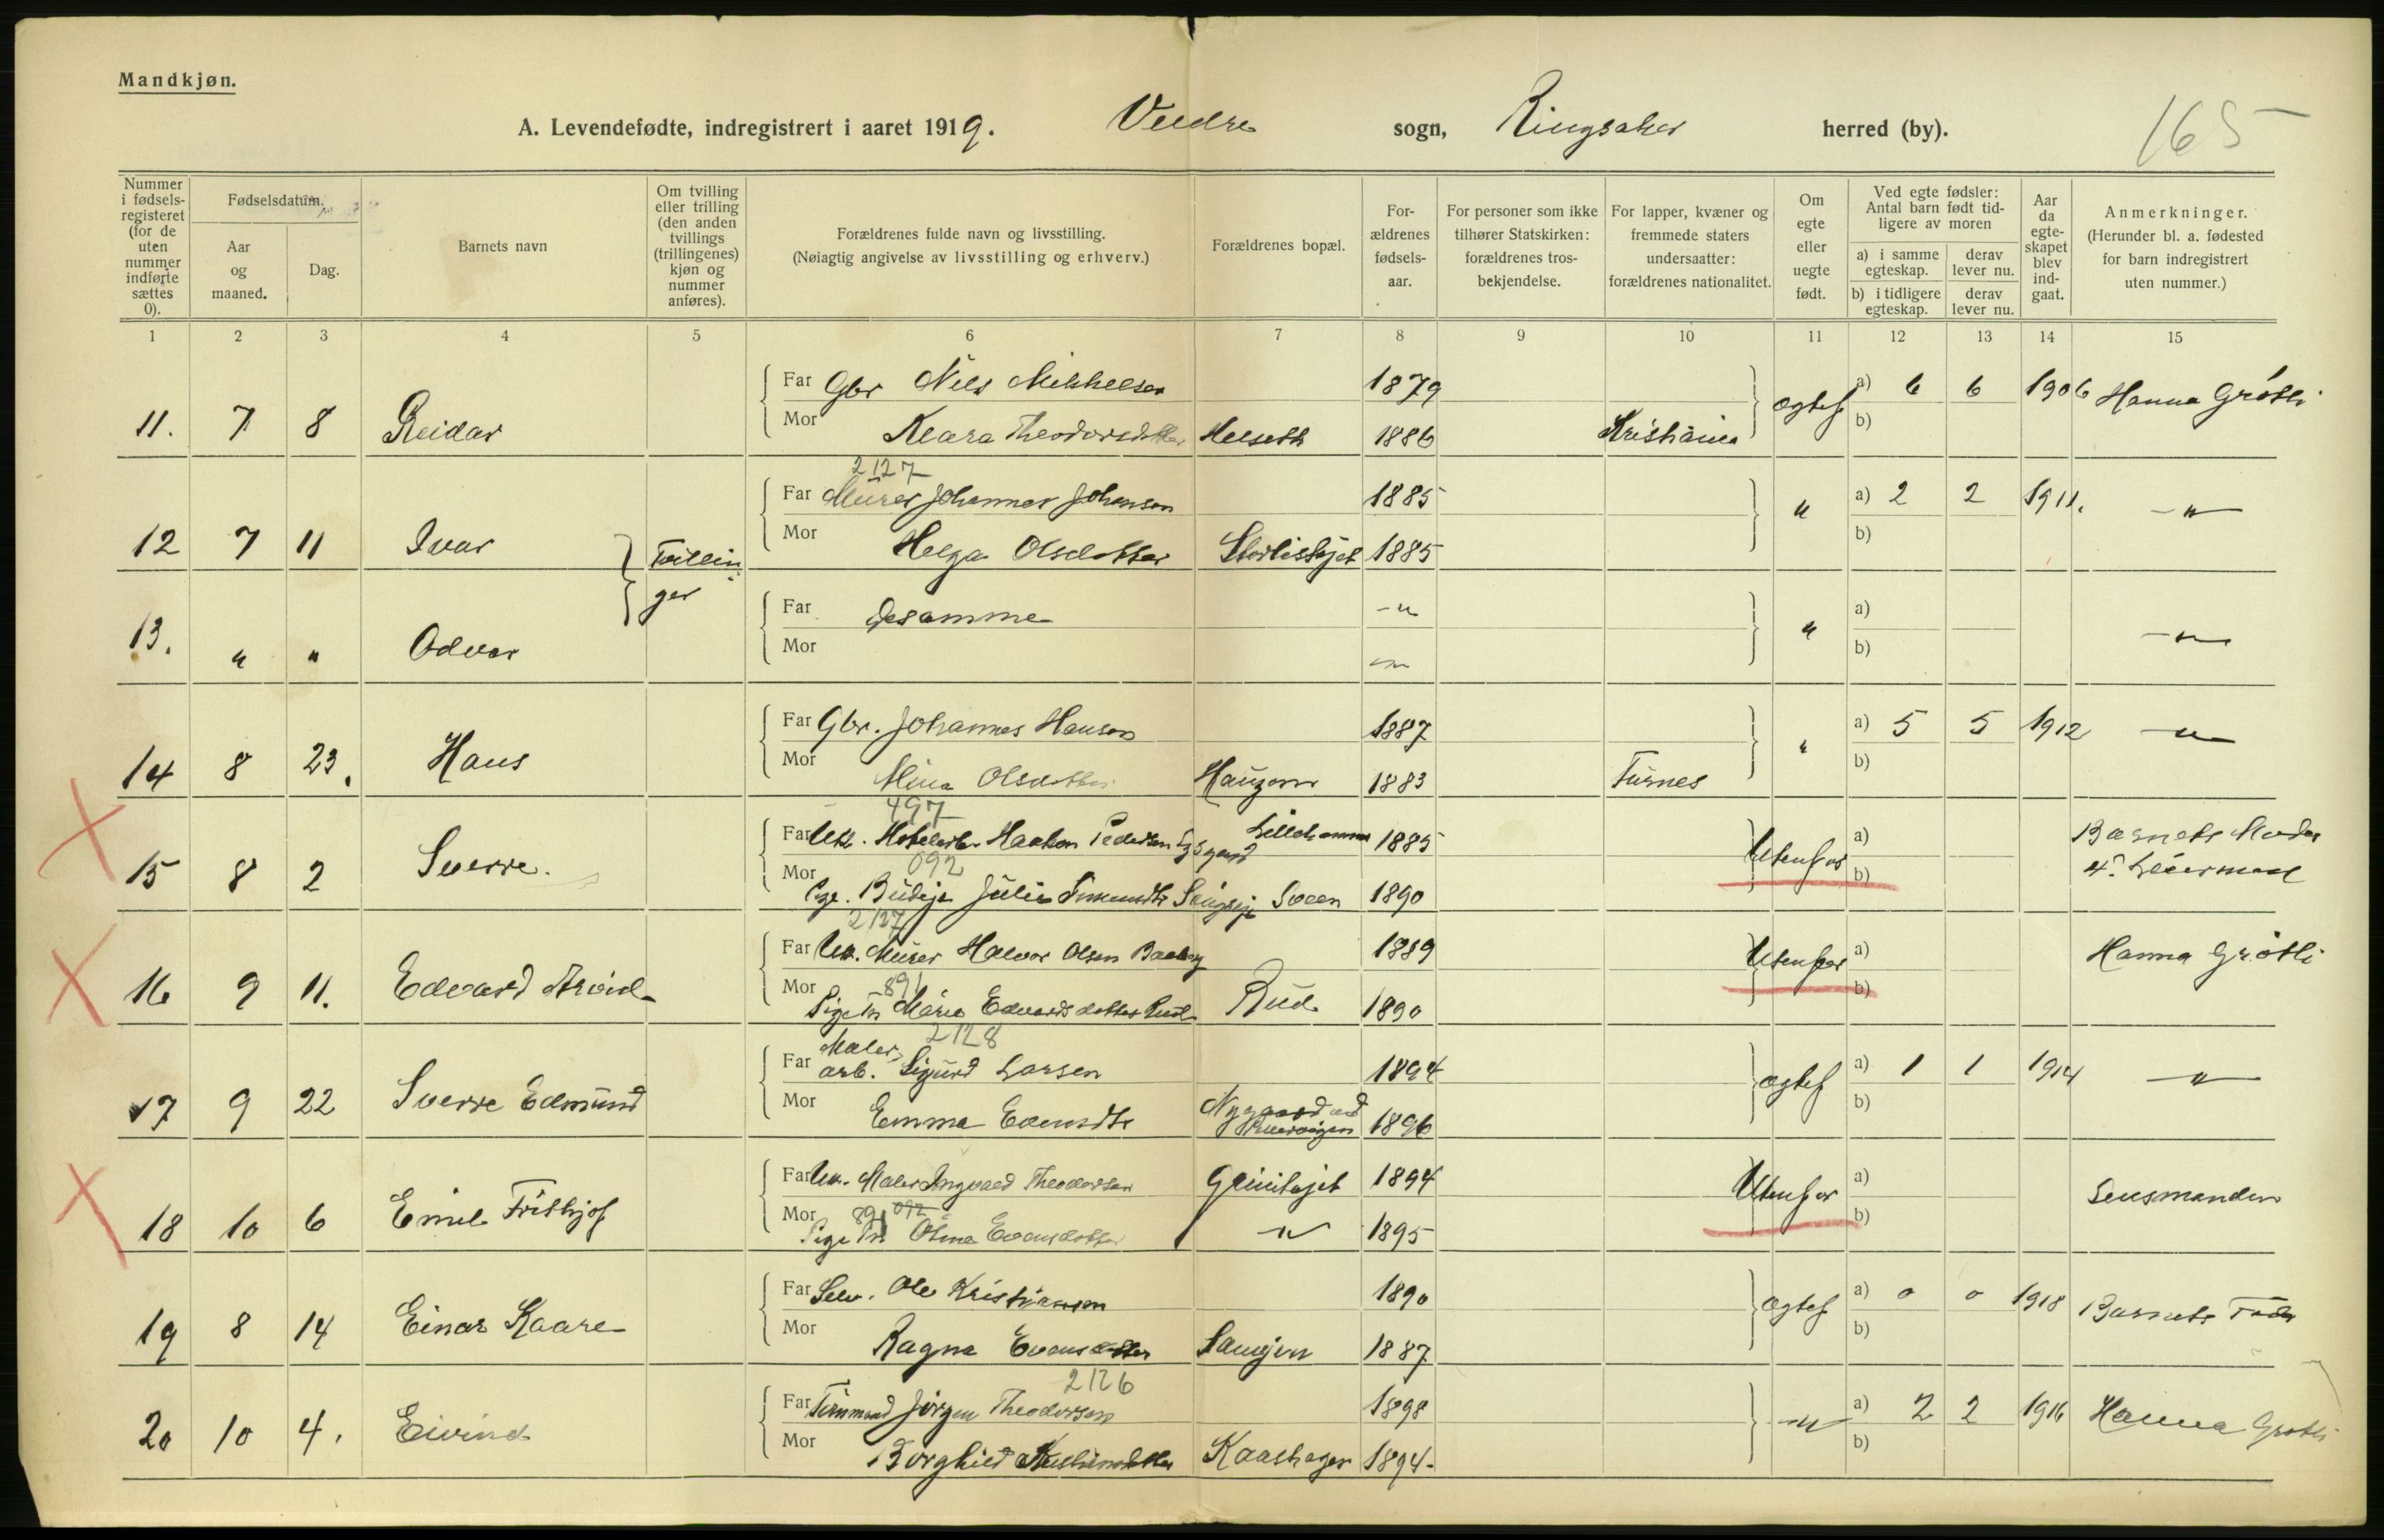 Mandkjøn.
A. Levendefødte, indregistrert i aaret 1919. Veldre sogn, Ringsaker herred (by). 165
Nummer i fødsels-registeret (for de uten nummer indførte sættes 0).
Fødselsdatum.
Aar og maaned.
Dag.
Barnets navn
Om tvilling eller trilling (den anden tvillings (trillingenes) kjøn og nummer anføres).
Forældrenes fulde navn og livsstilling.
(Nøiagtig angivelse av livsstilling og erhverv.)
Forældrenes bopæl.
For-ældrenes fødsels-aar.
For personer som ikke tilhører Statskirken: forældrenes tros-bekjendelse.
For lapper, kvæner og fremmede staters undersaatter: forældrenes nationalitet.
Om egte eller uegte født.
Ved egte fødsler: Antal barn født tid-ligere av moren
a) i samme egteskap. derav lever nu.
b) i tidligere egteskap. derav lever nu.
Aar da egte-skapet blev ind-gaat.
Anmerkninger.
(Herunder bl. a. fødested for barn indregistrert uten nummer.)
1 2 3 4 5 6 7 8 9 10 11 12 13 14 15
Far Gbr Nils Mikkelsen 1879 a) 6 6 1906 Hanna Grøtli
11. 7 8 Reidar Mor Klara Theodorsdatter Helseth 1886 Kristiania b)
2127
Far Murer Johannes Johansen 1885 " a) 2 2 1911. -"-
12 7 11 Ivar Tvillin- Mor Helga Olsdatter 1885 b)
ger
Far Desamme -" " a)
13. " " Odvar Mor -"- b) -"-
Far Gbr. Johannes Hansen 1887 " a) 5 5 1912 -"-
14 8 23. Hans Mor Mina Olsdatter Haugom 1883 Furnes b)
497
Far Uk. Haakon Pedersen Lilleham 1885 Utenfor a) Barnets Moder
092
15 8 2 Sverre. Mor Pige. Budeje Julie Sveen 1890 b)
2127
Far Uk. Murer Halvor Olsen 1889 Utenfor a) Hanna Grøtli
891
16 9 11. Edvard Arvid Mor Pige Tn Marie Edvardsdatter Rud Rud 1890 b)
2128
Maler,
Far arb. Sigurd Larsen 1894 a) 1 1 1914 -"-
17 9 22 Sverre Edmund Mor Emma Evensdtr Nygaard 1896 b)
Far Uk. Maler Ingvald Theodorsen 1894 Utenfor a) Lensmanden
891 092
18 10 6 Emil Frithjof Mor Pige Tn. Evensdatter -"- 1895 b)
Far Selv. Ole Kristiansen 1890 a) 0 0 1918 Barnets Fader
19 8 14 Einar Kaare Mor Ragna Evensdatter 1887 b)
2126
Far Jørgen Theodorsen 1898 -"- a) 2 2 1916 Hanna Grøtli
20 10 4. Eivind Mor Borghild 1894. b)